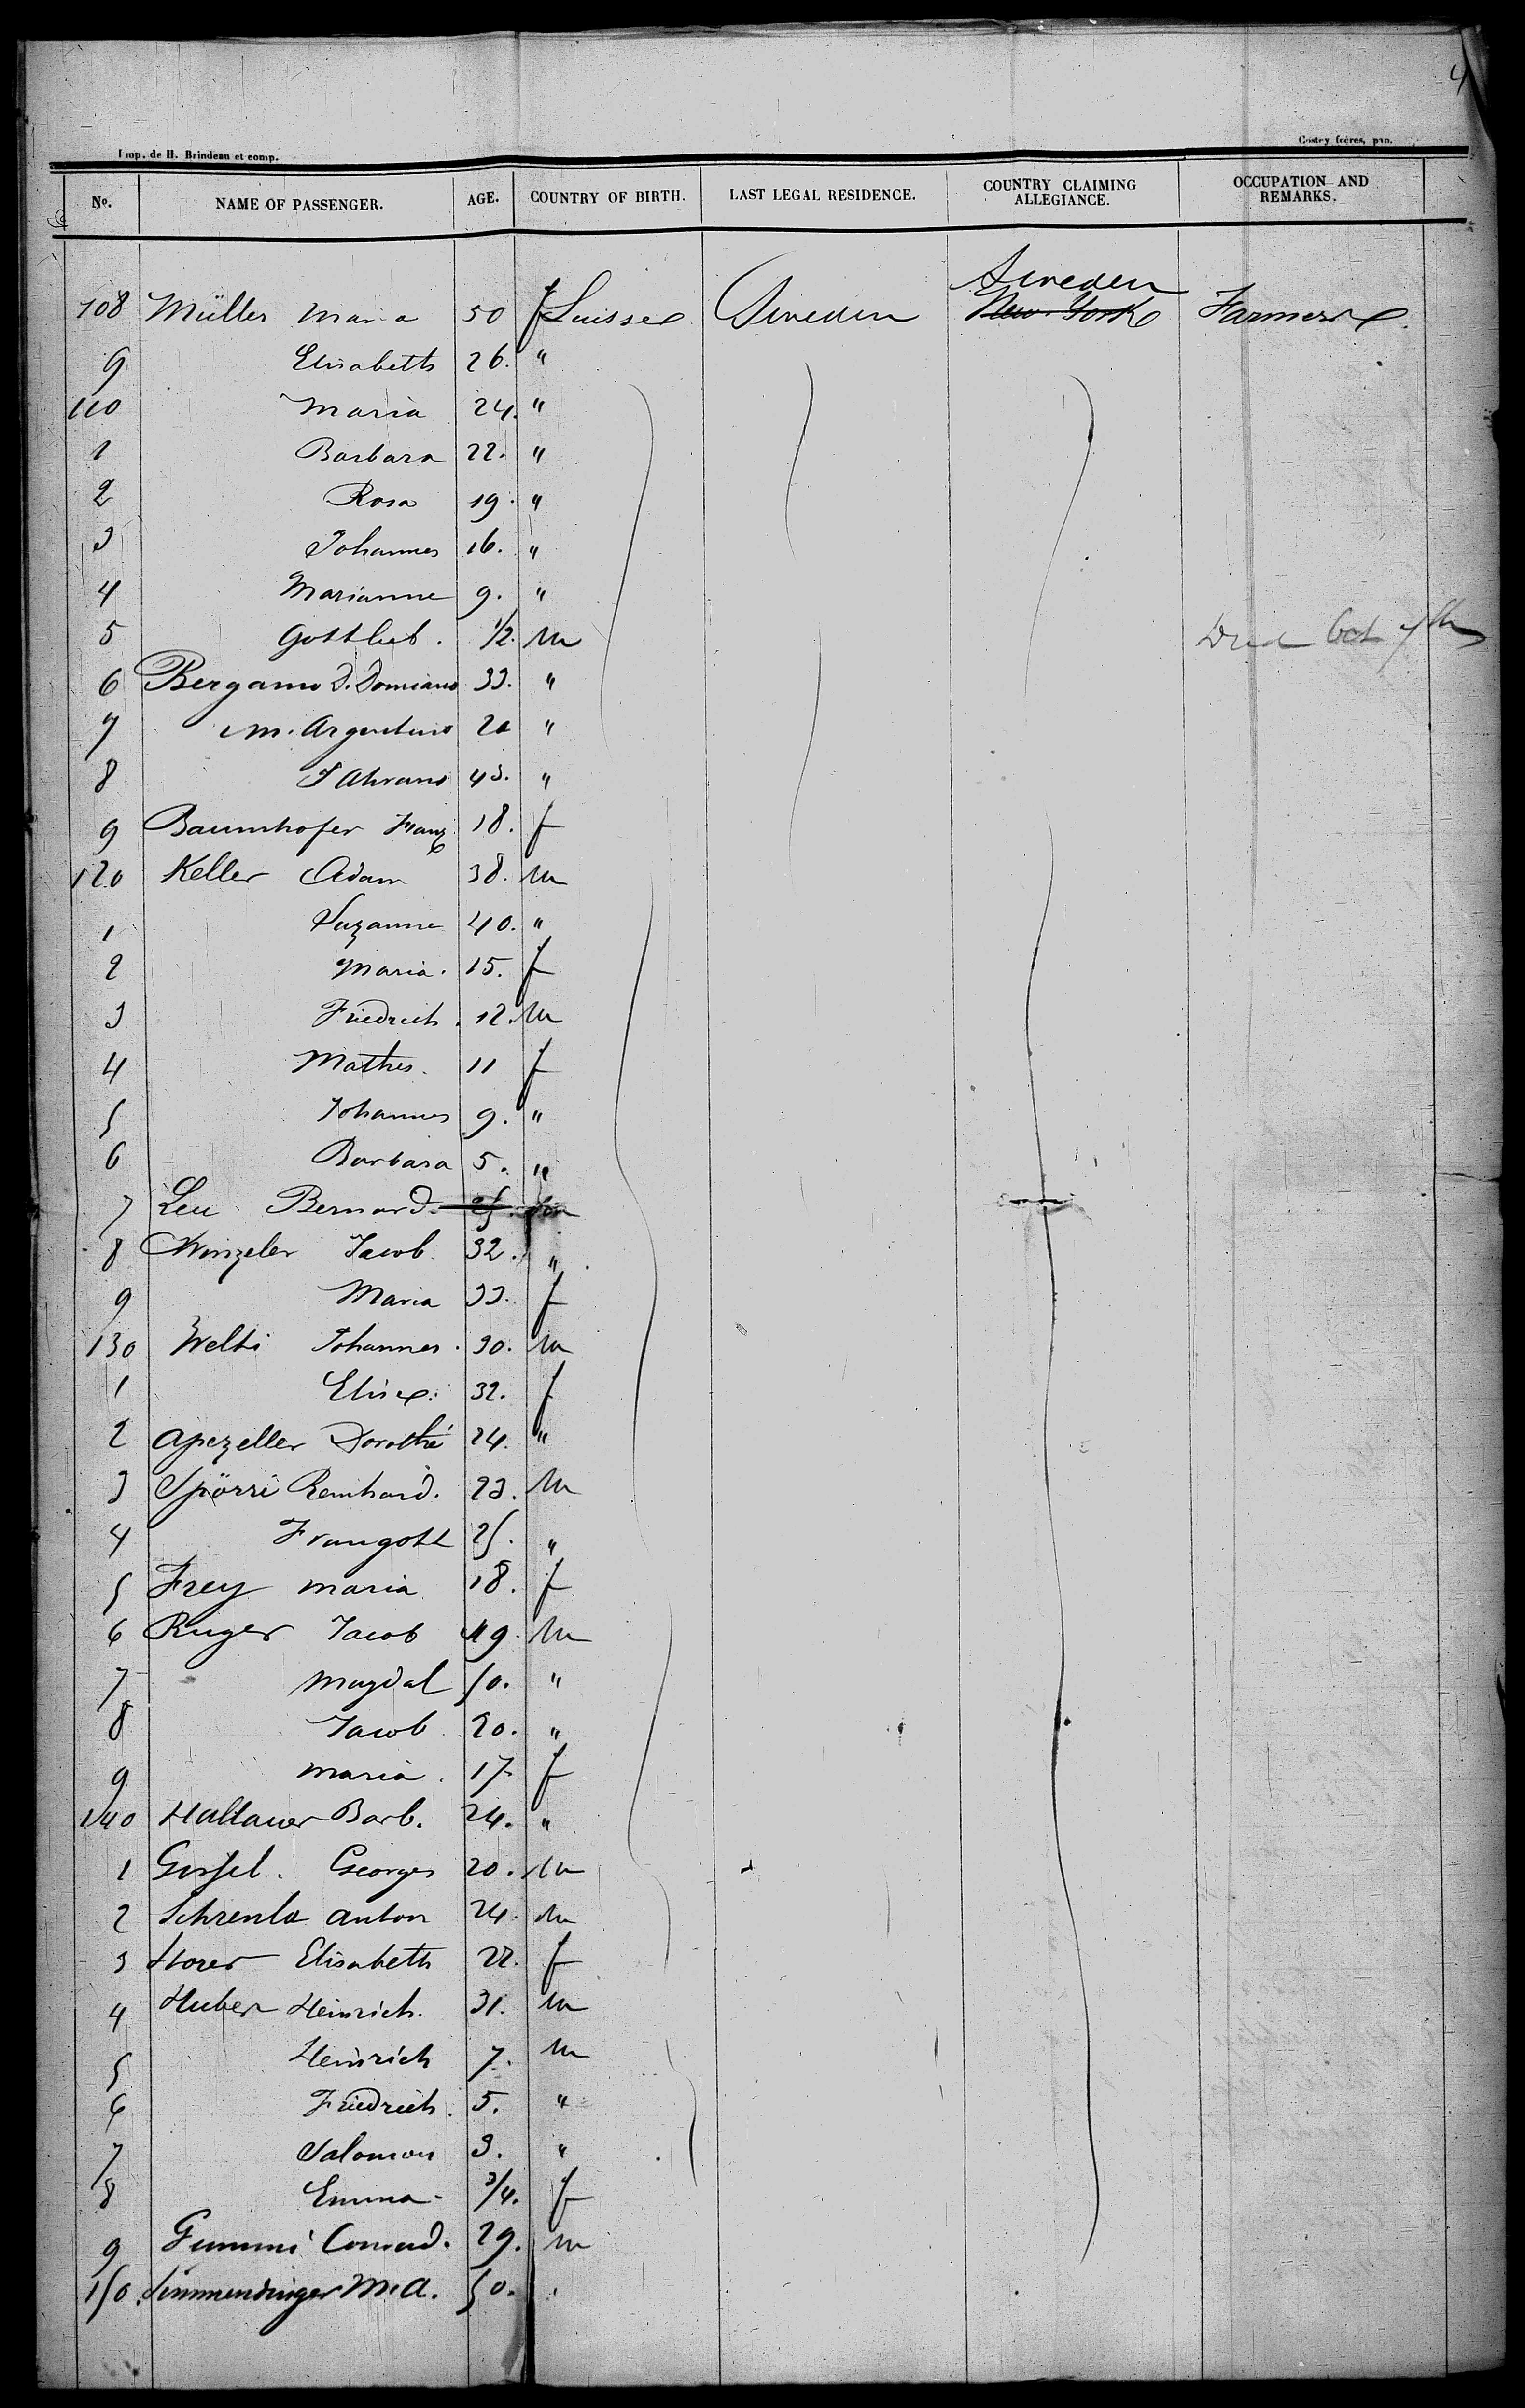 4
Imp. de H. Brindeau et comp. Costey frères, pan.
No. NAME OF PASSENGER. AGE. COUNTRY OF BIRTH. LAST LEGAL RESIDENCE. COUNTRY CLAIMING ALLEGIANCE. OCCUPATION AND REMARKS.
Sweden
108 Müller Maria 50 f Suisse Sweden New York Farmers
9 Elisabeth 26. "
110 Maria 24. "
1 Barbara 22. "
2 Rosa 19. "
3 Johannes 16. "
4 Marianne 9. "
5 Gottlieb. 1/2. m Died Oct 7th
6 Bergamo D. Domiano 33. "
7 M. Argentino 20 "
8 J 43. "
9 Baumhofer Franz 18. f
120 Keller Adam 38. m
1 Suzanne 40. "
2 Maria. 15. f
3 Friedrich. 12. m
4 Mathes. 11 f
5 Johannes 9. "
6 Barbara 5. "
7 Leu Bernard 25. m
8 Winzeler Jacob 32. "
9 Maria 33. f
130 Welti Johannes. 30. m
1 Elise. 32. f
2 Apezeller Dorothé 24. "
3 Spörri Reinhard. 23. m
4 Traugott 25. "
5 Frey Maria 18. f
6 Ruger Jacob 49. m
7 Magdal 50. "
8 Jacob 20. "
9 Maria. 17. f
140 Hallauer Barb. 24. "
1 Georges 20. m
2 Schrenla Anton 24. m
3 Horer Elisabeth 22. f
4 Huber Heinrich. 31. m
5 Heinrich 7. m
6 Friedrich. 5. "
7 Salomon 3. "
8 Emma 3/4. f
9 Conrad. 29. m
150 Simmendinger M. A. 50. "